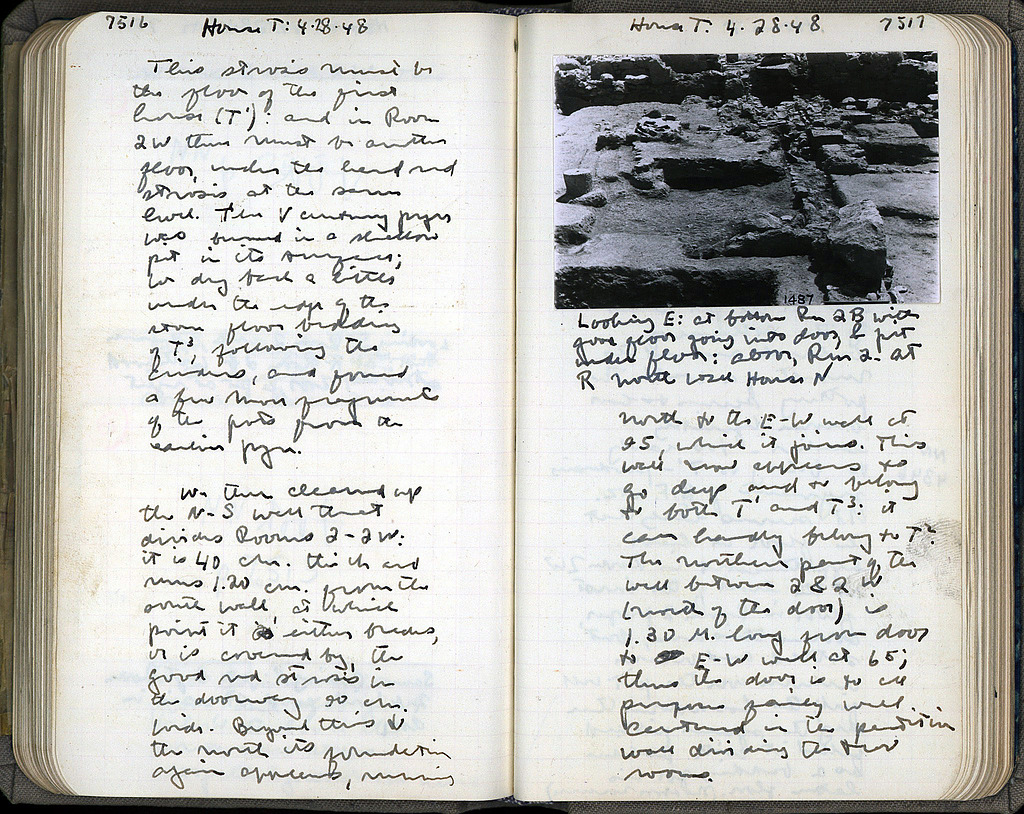 7516 House T: 4.28.48
This strosis must be
the floor of the first
house (T¹): and in Room
2W there must be another
floor, under the hard red
strosis at the same
level. The V century pyre
was burned in a shallow
pit in its surface;
we dug back a little
under the edge of the
stone floor bedding
of T³, following the
cinders, and found
a few more fragments
of the pots from the
earlier pyre.
We then cleaned up
the N-S wall that
divides Rooms 2-2W:
it is 40 cm. thick and
runs 1.20 cm. from the
south wall, at which
point it either breaks,
or is covered by, the
good red strosis in
the doorway 90 cm.
wide. Beyond this to
the north its foundation
again appears, running
House T. 4.28.48 7517
1487
Looking E: at bottom Rm 2B with
good floor going into door, & pit
under floor: above, Rm 2. At
R north wall House N
north to the E-W wall at
95, which it joins. This
wall now appears to
go deep and to belong
to both T¹ and T³: it
can hardly belong to T².
The northern part of the
wall between 2 & 2W
(north of the door) is
1.30 M. long from door
to E-W wall at 65;
thus the door is to all
purposes fairly well
centered in the partition
wall dividing the two
rooms.